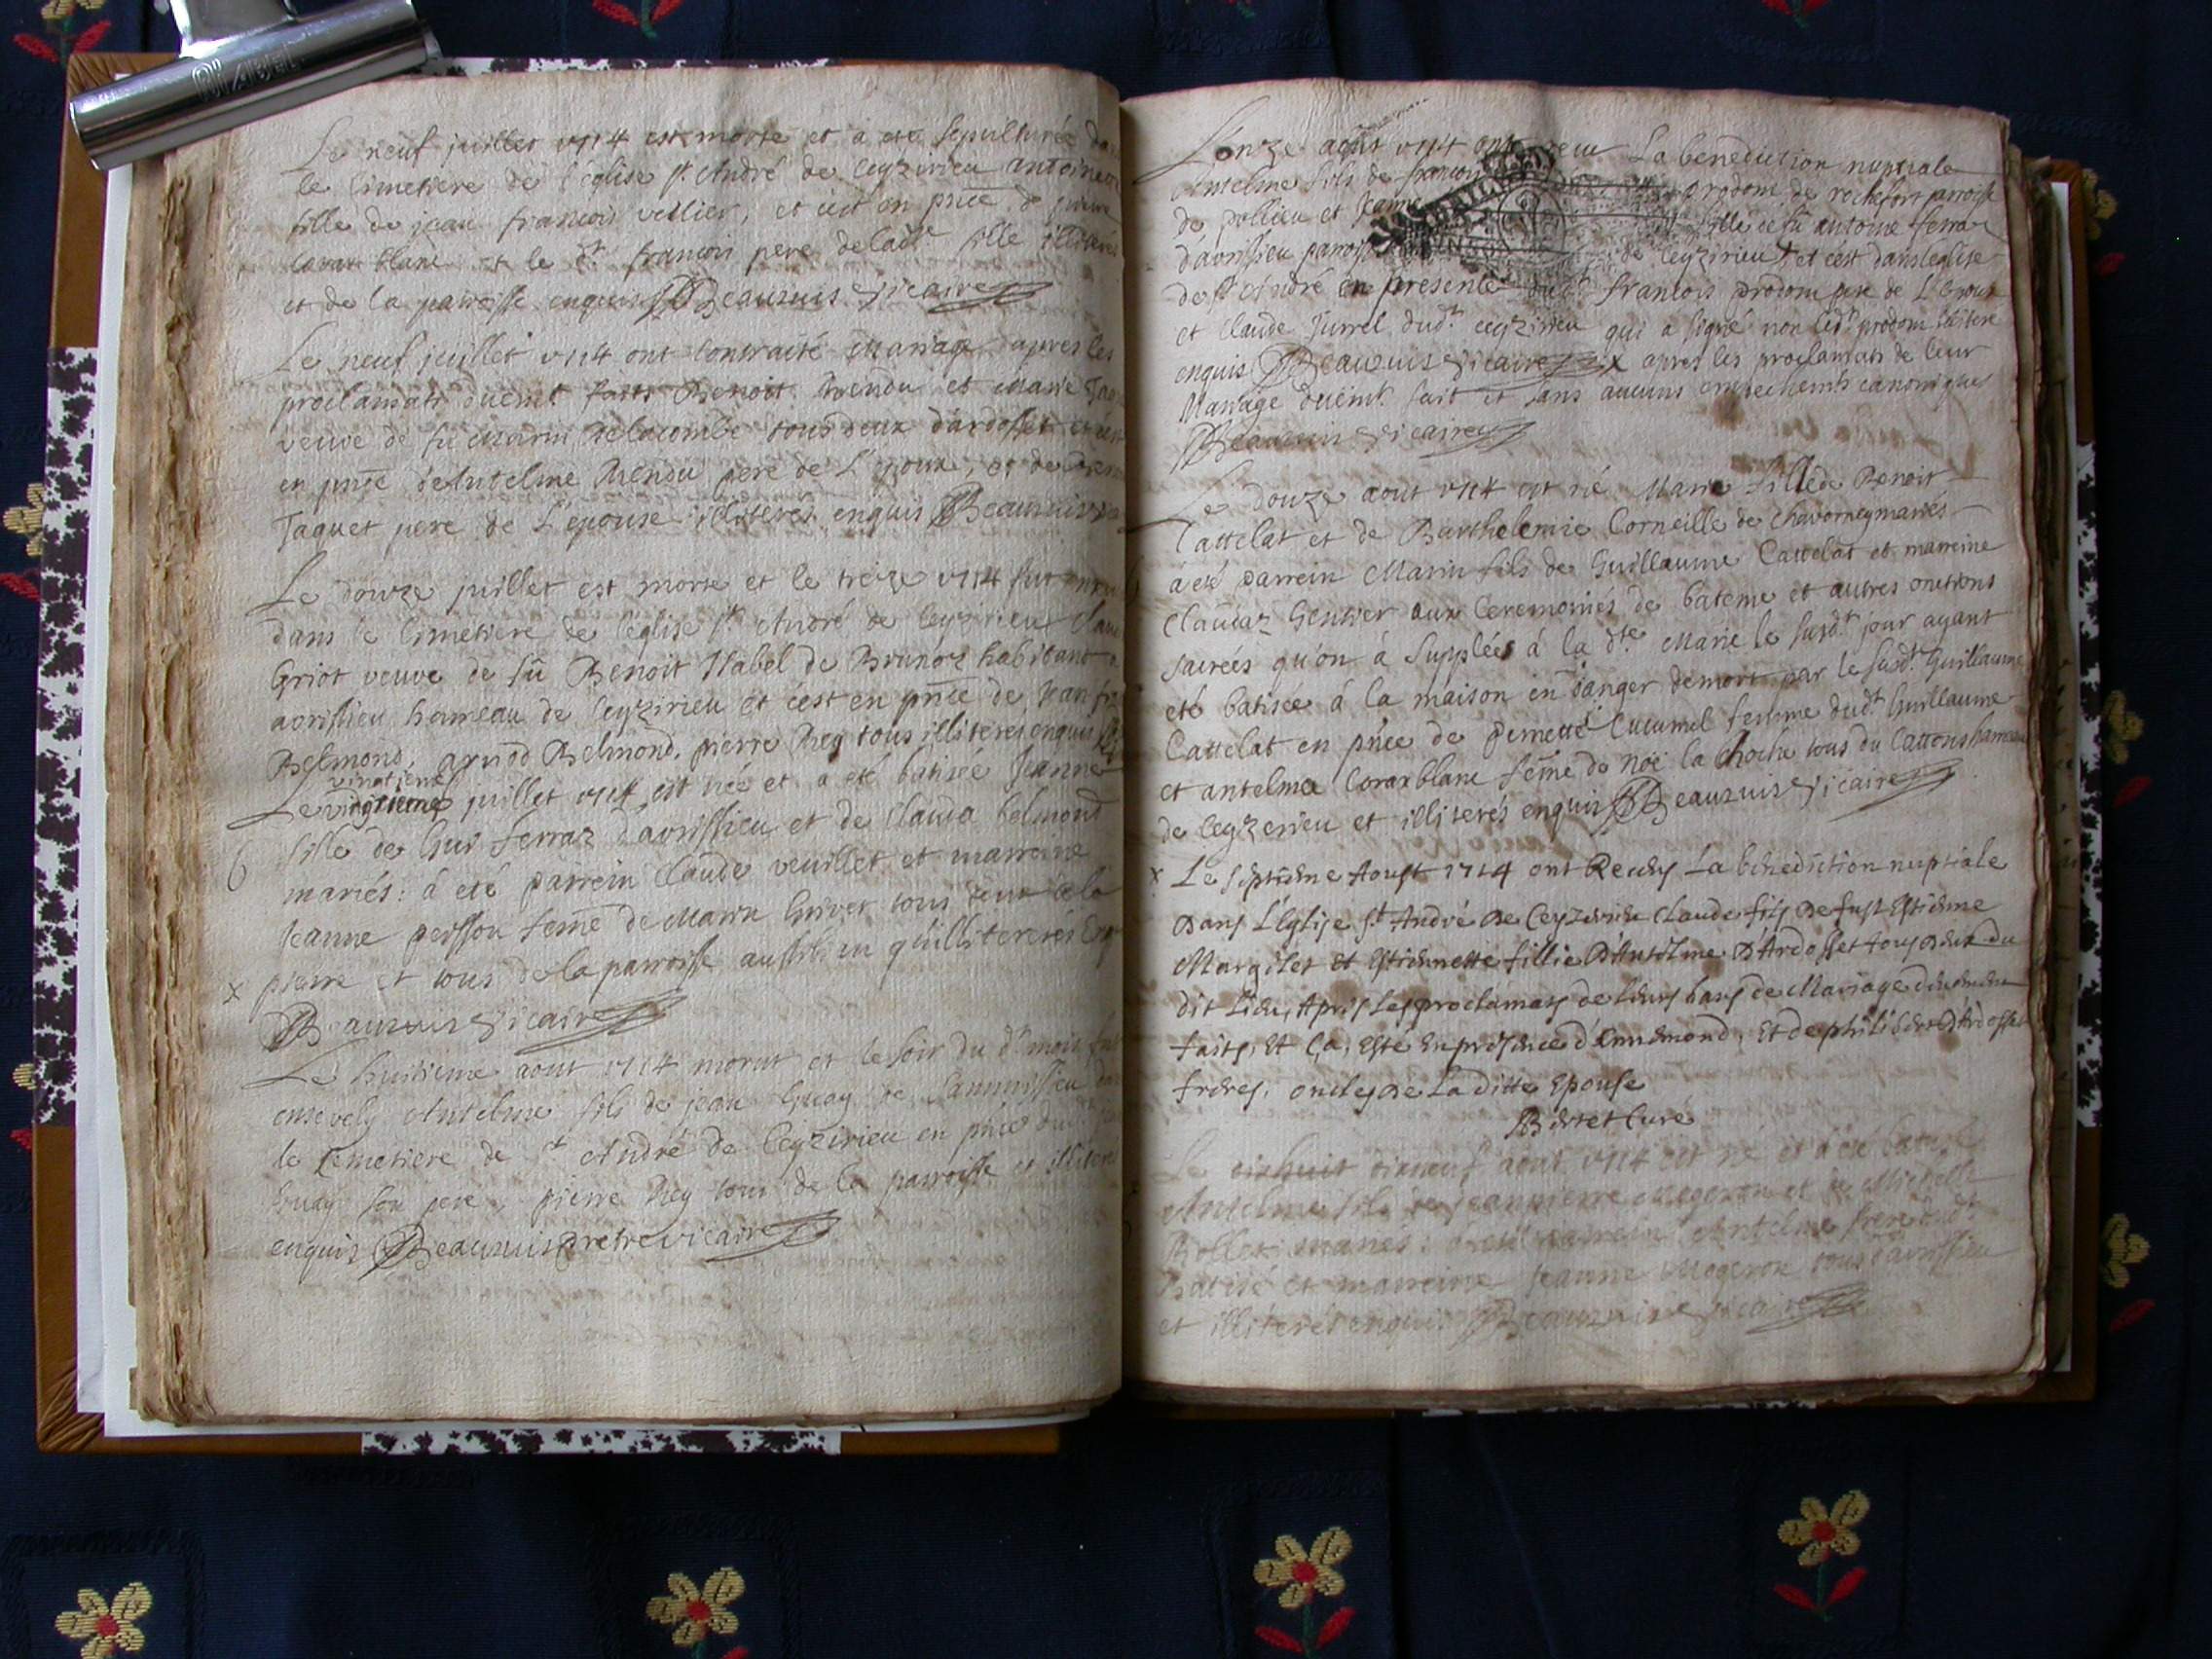 Le neuf juillet 1714 est morte et a eté sepulturée
le Cimetiere de l'église st André de Ceyzirieu antoinette
fille de jean francois vellier, et c'est en pnce de pierre
Corarblanc et le dt francois pere de ladte fille illiterés
et de la parroisse enquis Beauzuis vicaire
Le neuf juillet 1714 ont contracté Mariage apres les
proclamats duemt faits Benoit Rendu et Marie
veuve de fû Marin Delacombe tous deux d'ardosset et
en pnce d'Antelme Rendu pere de L'epoux, et de
Taquet pere de L'epouse illiterés enquis Beauzuis
Le douze juillet est morte et le treize 1714 fut
dans le Cimetiere de l'église st André de Ceyzirieu
Griot veuve de fû Benoit de habitant
avrissieu hameau de Ceyzirieu et c'est en pnce de Jean
Belmond, Belmond, pierre Rey tous illiterés enquis
vintieme
Le juillet 1714 est née et a eté batisée Jeanne
6 fille de Guy ferraz d'avrissieu et de Clauda belmond
mariés: á eté parrein Claude veuillet et marreine
Jeanne peisson feme de Marin tous de la
x pierre et tous de la parroisse aussi bien qu'illiterés
Beauzuis vicaire
Le huitieme aout 1714 morut et le soir du dt mois fut
ensevely Antelme fils de jean Guay de
le Cemetiere de st André de Ceyzirieu en pnce dudt
Guay son pere, pierre Rey tous de la parroisse et illiterés
enquis Beauzuis pretre vicaire
L'onze aout 1714 ont receu La benediction nuptiale
Antelme fils de francois prodom de rochefort parroisse
de pollieu et Jeanne fille de fû antoine ferraz
d'avrissieu parroisse de Ceyzirieu et c'est dans l'eglise
de st André en presence dudt francois prodom pere de L'epoux
et Claude Jurrel dudt ceyzirieu qui a signé non ledt prodom illitere
enquis Beauzuis vicaire x apres les proclamats de leur
Mariage duemt fait et sans aucuns empechemts canoniques
Beauzuis vicaire
Le douze aout 1714 est né Marie fille de Benoit
Cattelat et de Barthelemie Corneille de Chavorney mariés
á eté parrein Marin fils de Guillaume Cattelat et marreine
Claudaz aux Ceremonies de bateme et autres onctions
sacrées qu'on á Supplées á la dte Marie le susdt jour ayant
eté batisée á la maison en danger de mort par le susdt Guillaume
Cattelat en pnce de pernette Cucumel femme dudt Guillaume
et antelma Corarblanc feme de noë la choche tous du Cattons hameau
de Ceyzerieu et illiterés enquis Beauzuis vicaire
x Le septieme Aoust 1714 ont Receus La benediction nuptiale
Dans L'Eglise St André De Ceyzerieu Claude fils De fust Estienne
Margilet Et Estiennette fillie D'Antelme D'Ardosset tous Deux du
dit Lieu, Apres Les proclamats de Leurs bans de Mariage duement
faits, Et Ça, Esté En presence d'Ennemond, Et De philibert D'Ardosset
freres, oncles De La ditte Epouse
Curé
Le dixneuf aout 1714 est né et a eté batisé
Antelme fils de jeanpierre Mogeron et de Michelle
Rollet mariés: a eté parrein Antelme frere dudt
Batisé et marreine Jeanne Mogeron tous d'avrissieu
et illiterés enquis Beauzuis vicaire